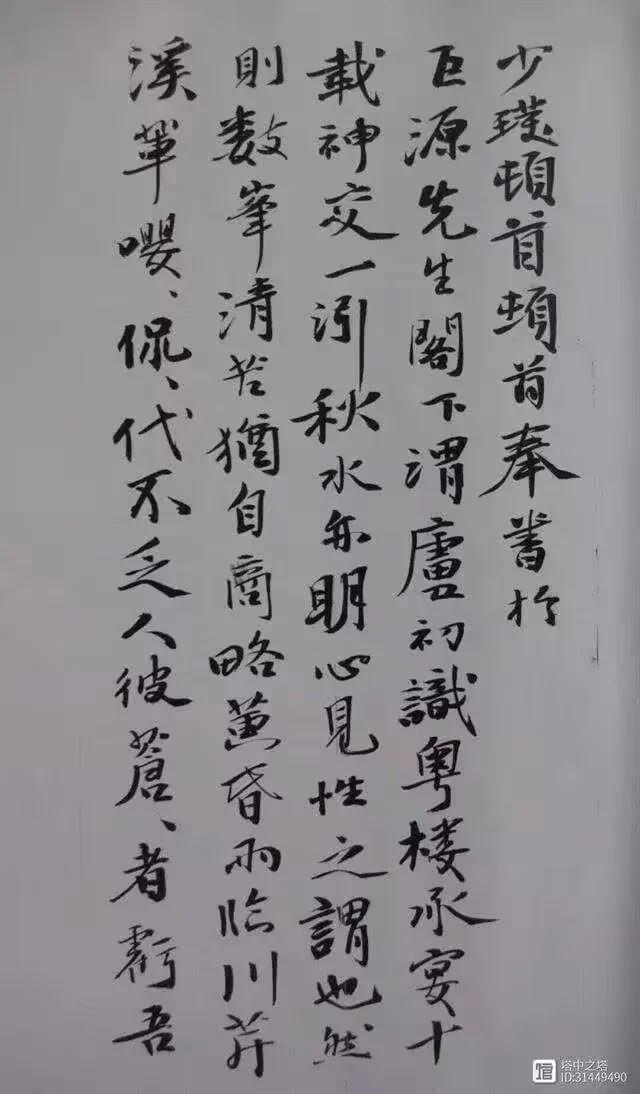 少璞頓首頓首奉書於
巨源先生閣下渭廬初識粵楼承宴十
載神交一引秋水亦明心見性之謂也然
則数峯清苦猶自商略黄昏雨臨川
溪單嚶、侃、代不乏人彼蒼、者虧吾
塔中之塔
ID:31449490